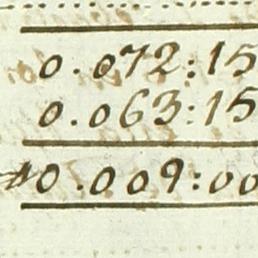 0.072:15
0.063:15
0.009:00